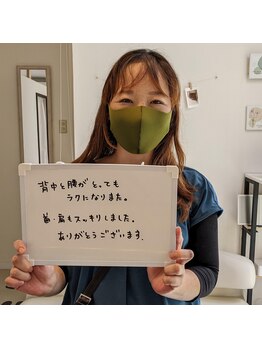 背中と腰がとっても
ラクになりました。
首・肩もスッキリしました。
ありがとうございます。